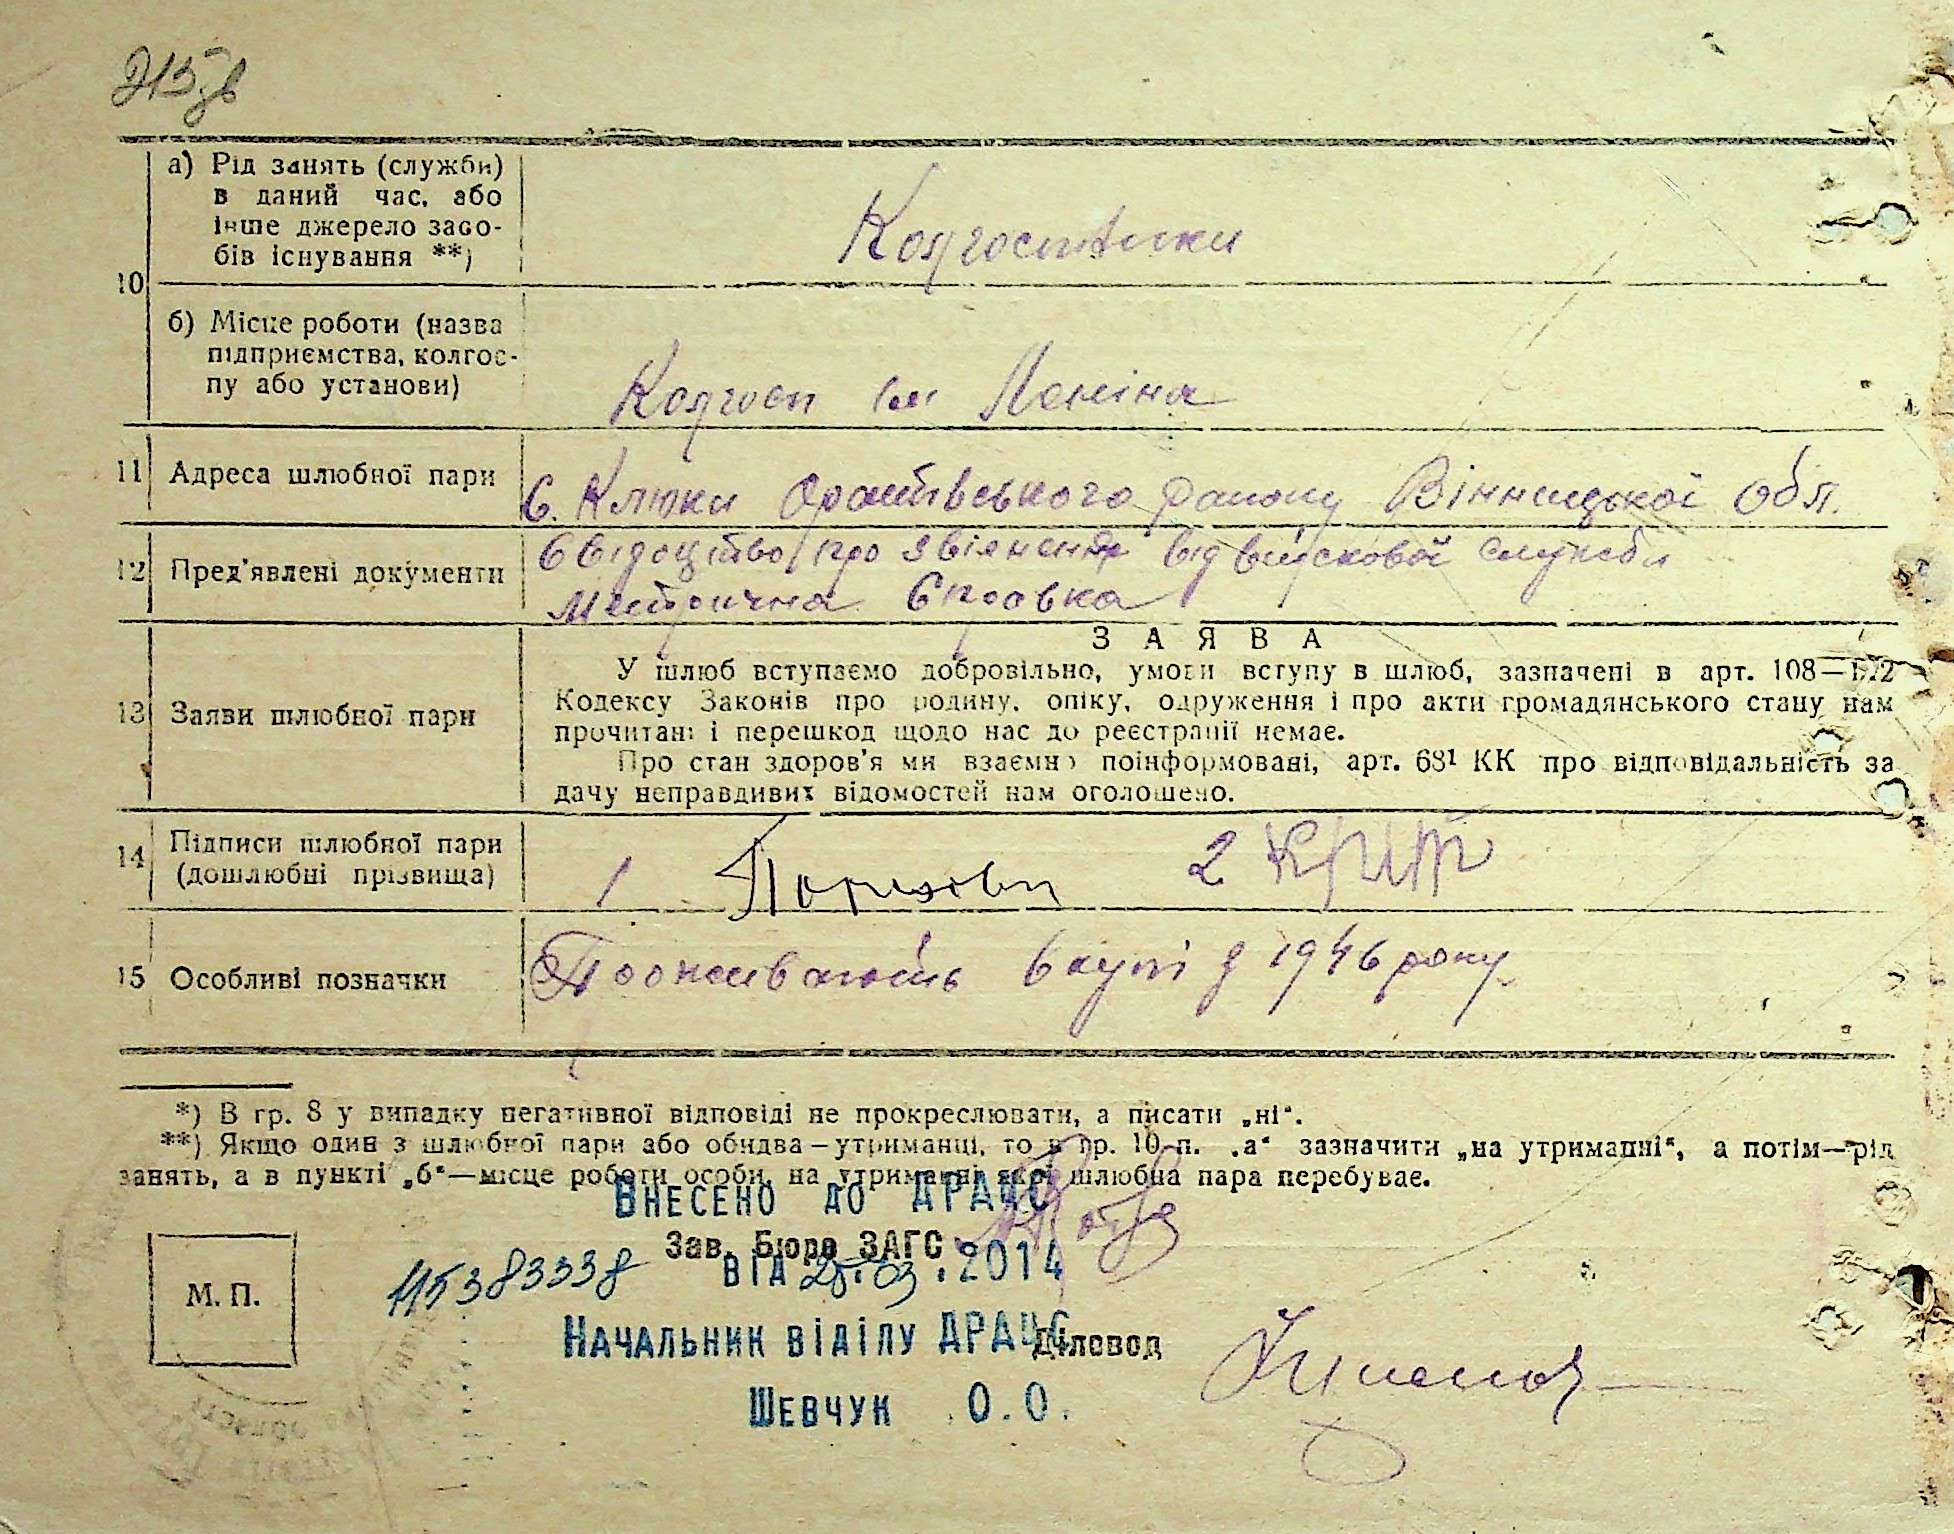 215зв
а) Рід занять (служби)
в даний час, або
інше джерело засо-
бів існування **)
Колгоспники
10
б) Місце роботи (назва
підприємства, колгос-
пу або установи)
Колгосп ім Леніна
11 Адреса шлюбної пари
с. Клюки Оратівського району Вінницької обл.
12 Пред’явлені документи
Свідоцтво про звілнення від війскової служби
Метрична Справка
13 Заяви шлюбної пари
ЗАЯВА
У шлюб вступаємо добровільно, умови вступу в шлюб, зазначені в арт. 108—112
Кодексу Законів про родину, опіку, одруження і про акти громадянського стану нам
прочитані і перешкод щодо нас до реєстрації немає.
Про стан здоров’я ми взаємно поінформовані, арт. 68¹ КК про відповідальність за
дачу неправдивих відомостей нам оголошено.
14 Підписи шлюбної пари
(дошлюбні прізвища)
1 2
15 Особливі позначки
Проживають вкупі з 1946 року
*) В гр. 8 у випадку негативної відповіді не прокреслювати, а писати „ні“.
**) Якщо один з шлюбної пари або обидва—утриманці, то в гр. 10 п. „а“ зазначити „на утриманні“, а потім—рід
занять, а в пункті „б“—місце роботи особи, на утриманні якої шлюбна пара перебуває.
Внесено до ДРАЦС
Зав. Бюро ЗАГС
№5383338 від 28.03.2014
М. П.
Начальник відділу ДРАЦС
Діловод
Шевчук О.О.